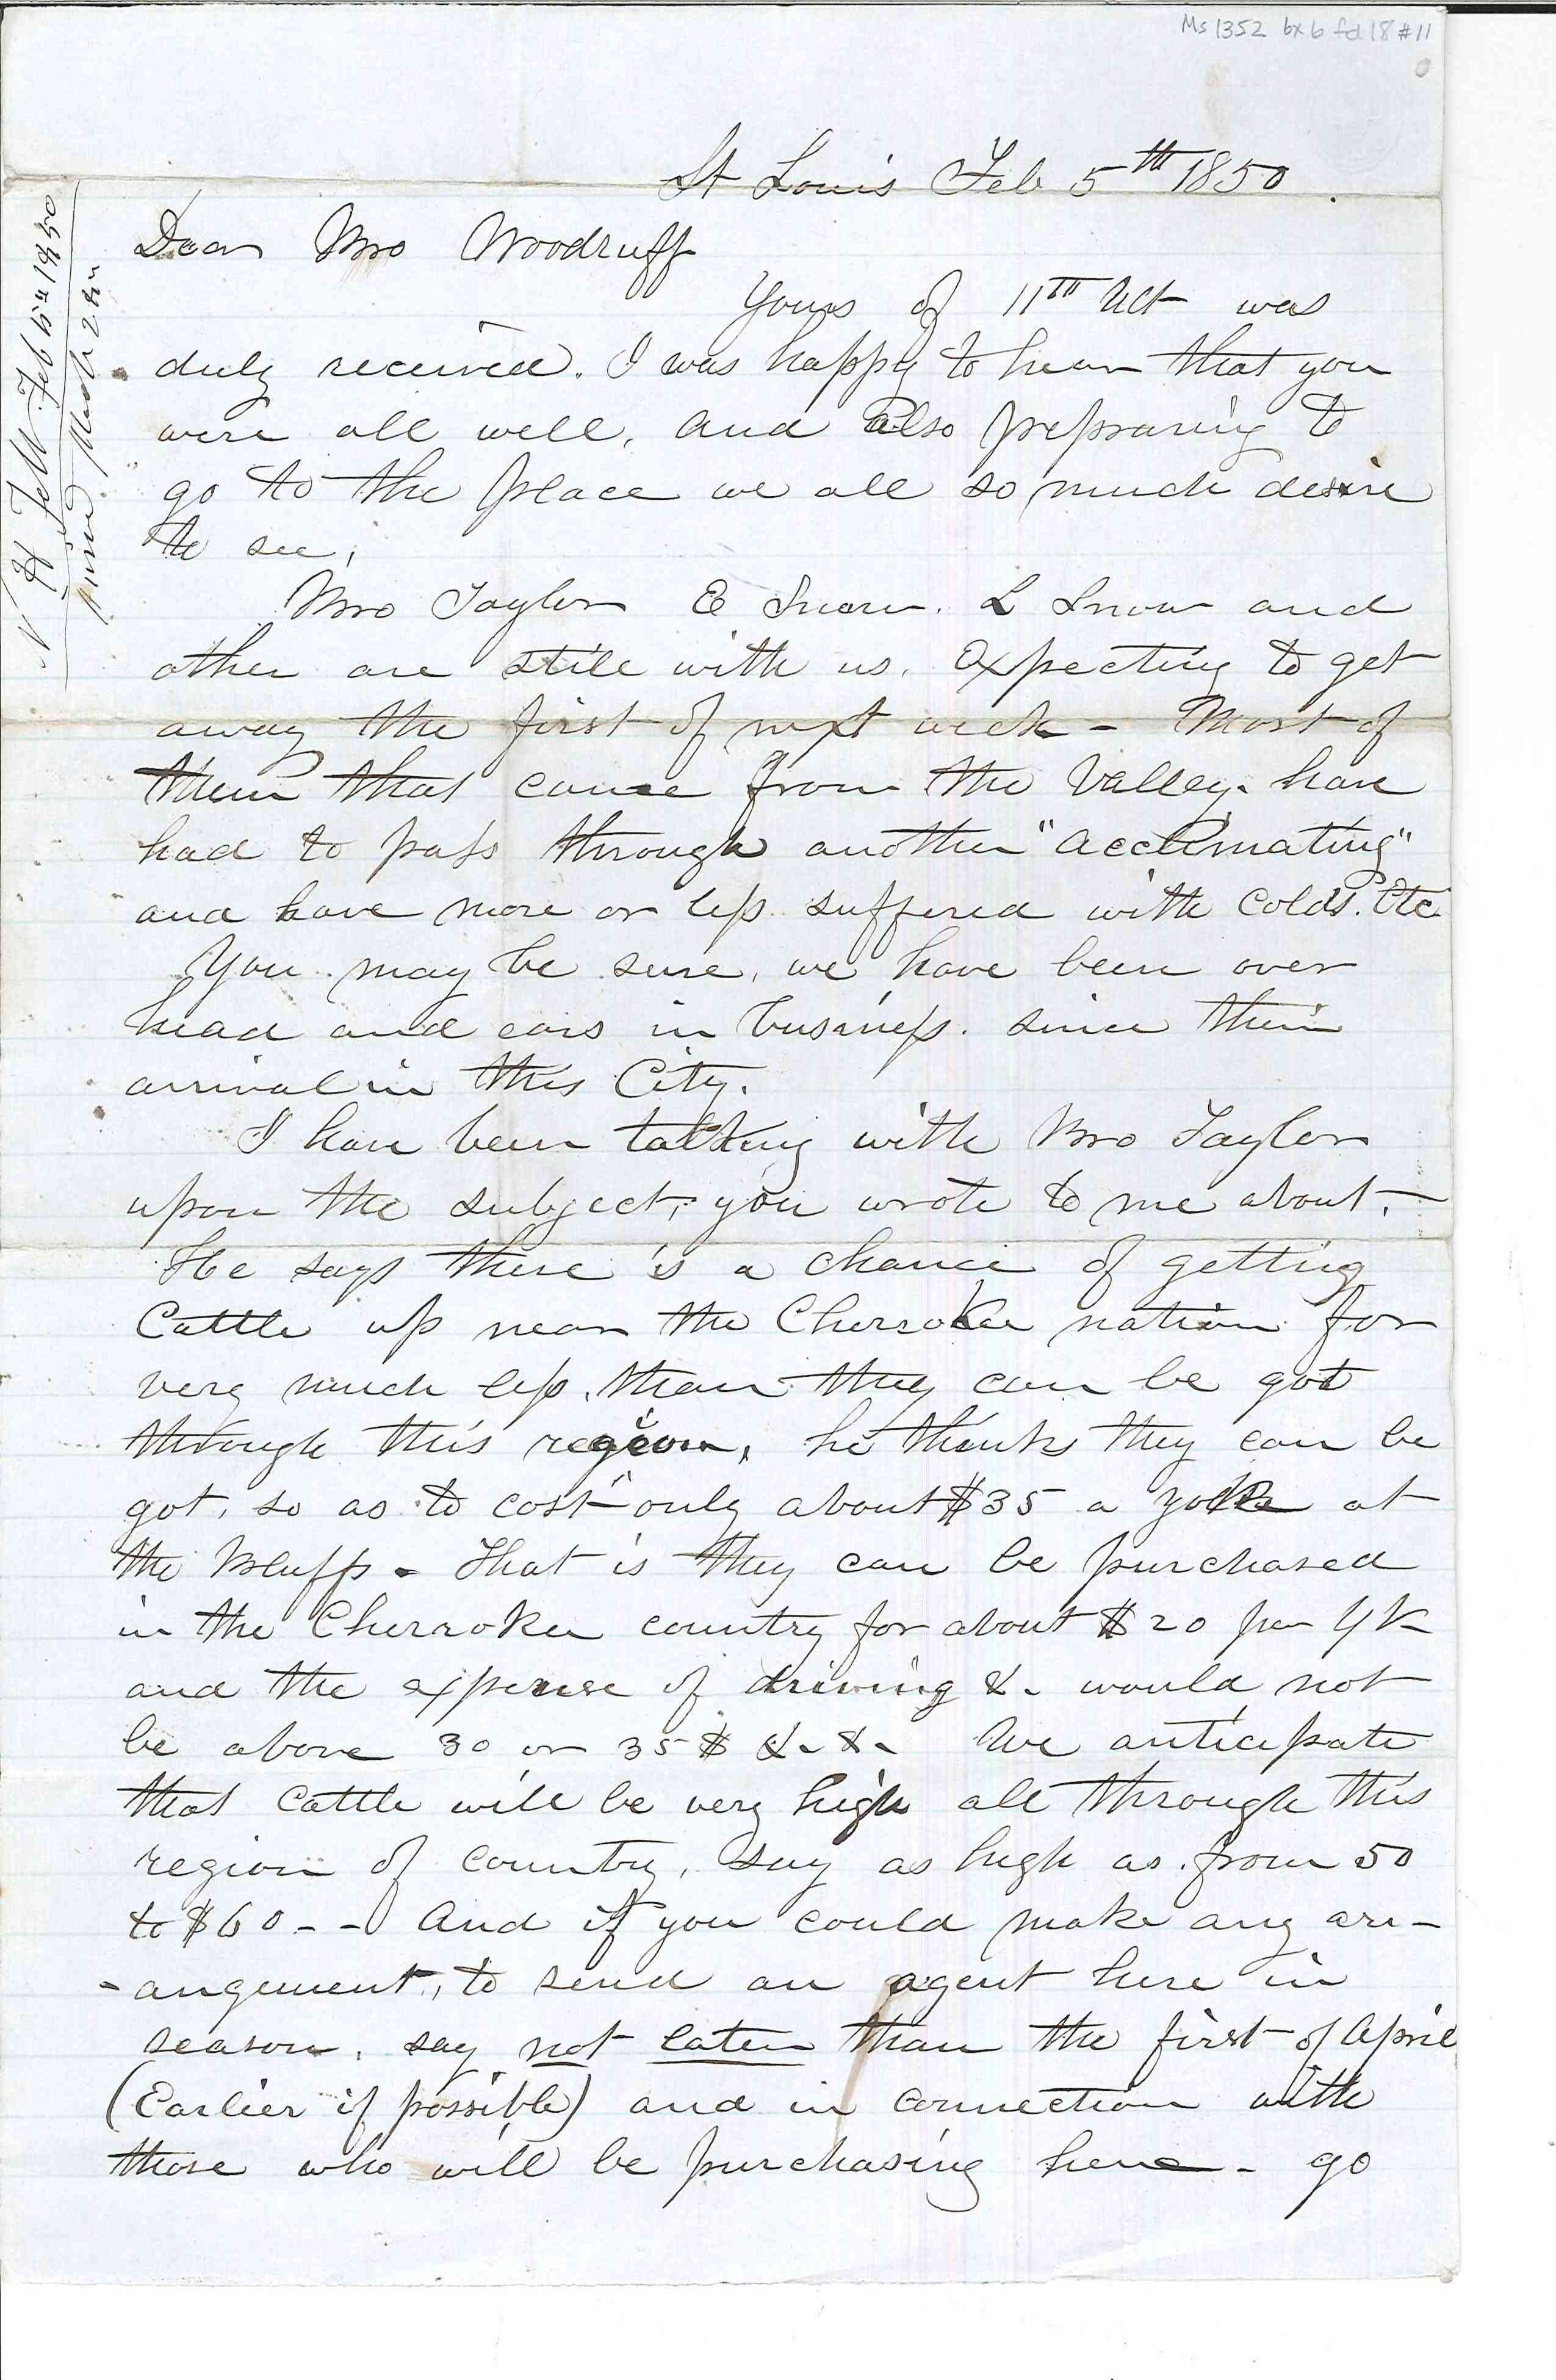 Ms 1352 bx 6 fd 18 #11
St Louis Feb 5th 1850.
Dear Bro Woodruff
Yours of 11th Ult was
duly received. I was happy to hear that you
were all well, and also prepraring to
go to the place we all so much desire
to see,
Bro Taylor E Snow. L Snow and
other are still with us. Expecting to get
away the first of next week - Most of
them that came from the Valley. have
had to pass through another "acclimating"
and have more or less suffered with Colds. Etc
You may be sure, we have been over
head and ears in business. since their
arrival in this City.
I have been talking with Bro Taylor
upon the subject, you wrote to me about. -
He says there is a chance of getting
Cattle up near the Cherrokee nation for
very much less, than they can be got
through this region, he thinks they can be
got, so as to cost only about $35 a yoke at
the Bluffs - That is they can be purchased
in the Cherrokee country for about $20 per Yk
and the expense of driving &. would not
be above 30 or 35$ &. &. We anticipate
that Cattle will be very high all through this
region of country, say as high as from 50
to $60 - - And if you could make any arr-
-angement, to send an agent here in
season, say not later than the first of April
(Earlier if possible) and in connection with
those who will be purchasing here - go
N H Felt Feb 5th 1850
March 2nd